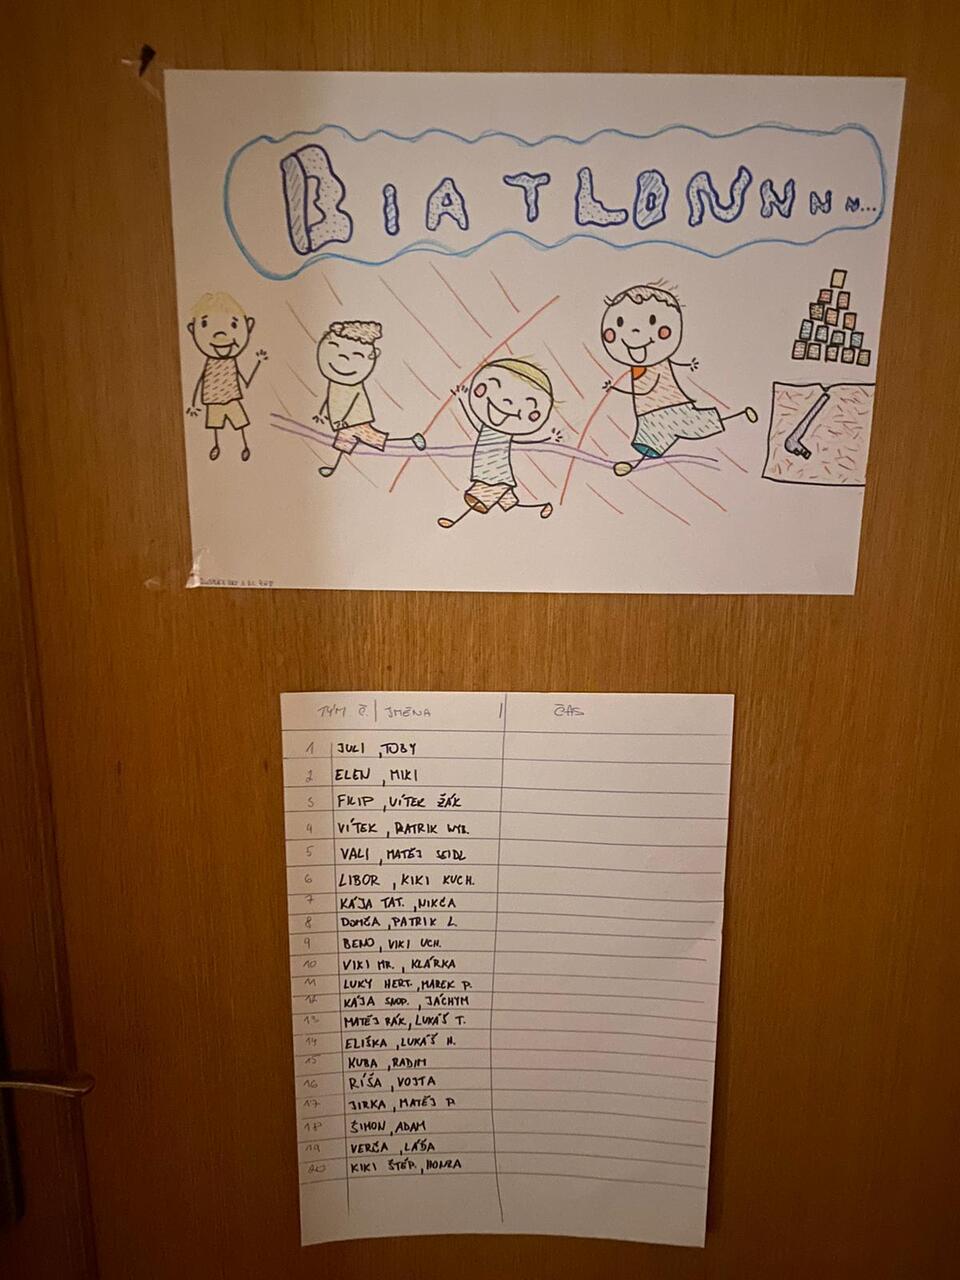 BIATLONNNN...
TÝM Č. JMÉNA ČAS
1 JULI, TOBY
2 ELEN, MIKI
3 FILIP, VÍTEK ŽÁK
4 VÍTEK, PATRIK WYB.
5 VALI, MATĚJ SEIDL
6 LIBOR, KIKI KUCH.
7 KÁJA TAT., NIKČA
8 DOMČA, PATRIK L.
9 BENO, VIKI UCH.
10 VIKI MR., KLÁRKA
11 LUKY HERT., MAREK P.
12 KÁJA SNOP., JÁCHYM
13 MATĚJ RÁK, LUKÁŠ T.
14 ELIŠKA, LUKÁŠ H.
15 KUBA, RADIM
16 RÍŠA, VOJTA
17 JIRKA, MATĚJ P.
18 ŠIMON, ADAM
19 VERČA, LÁĎA
20 KIKI ŠTĚP., HONZA